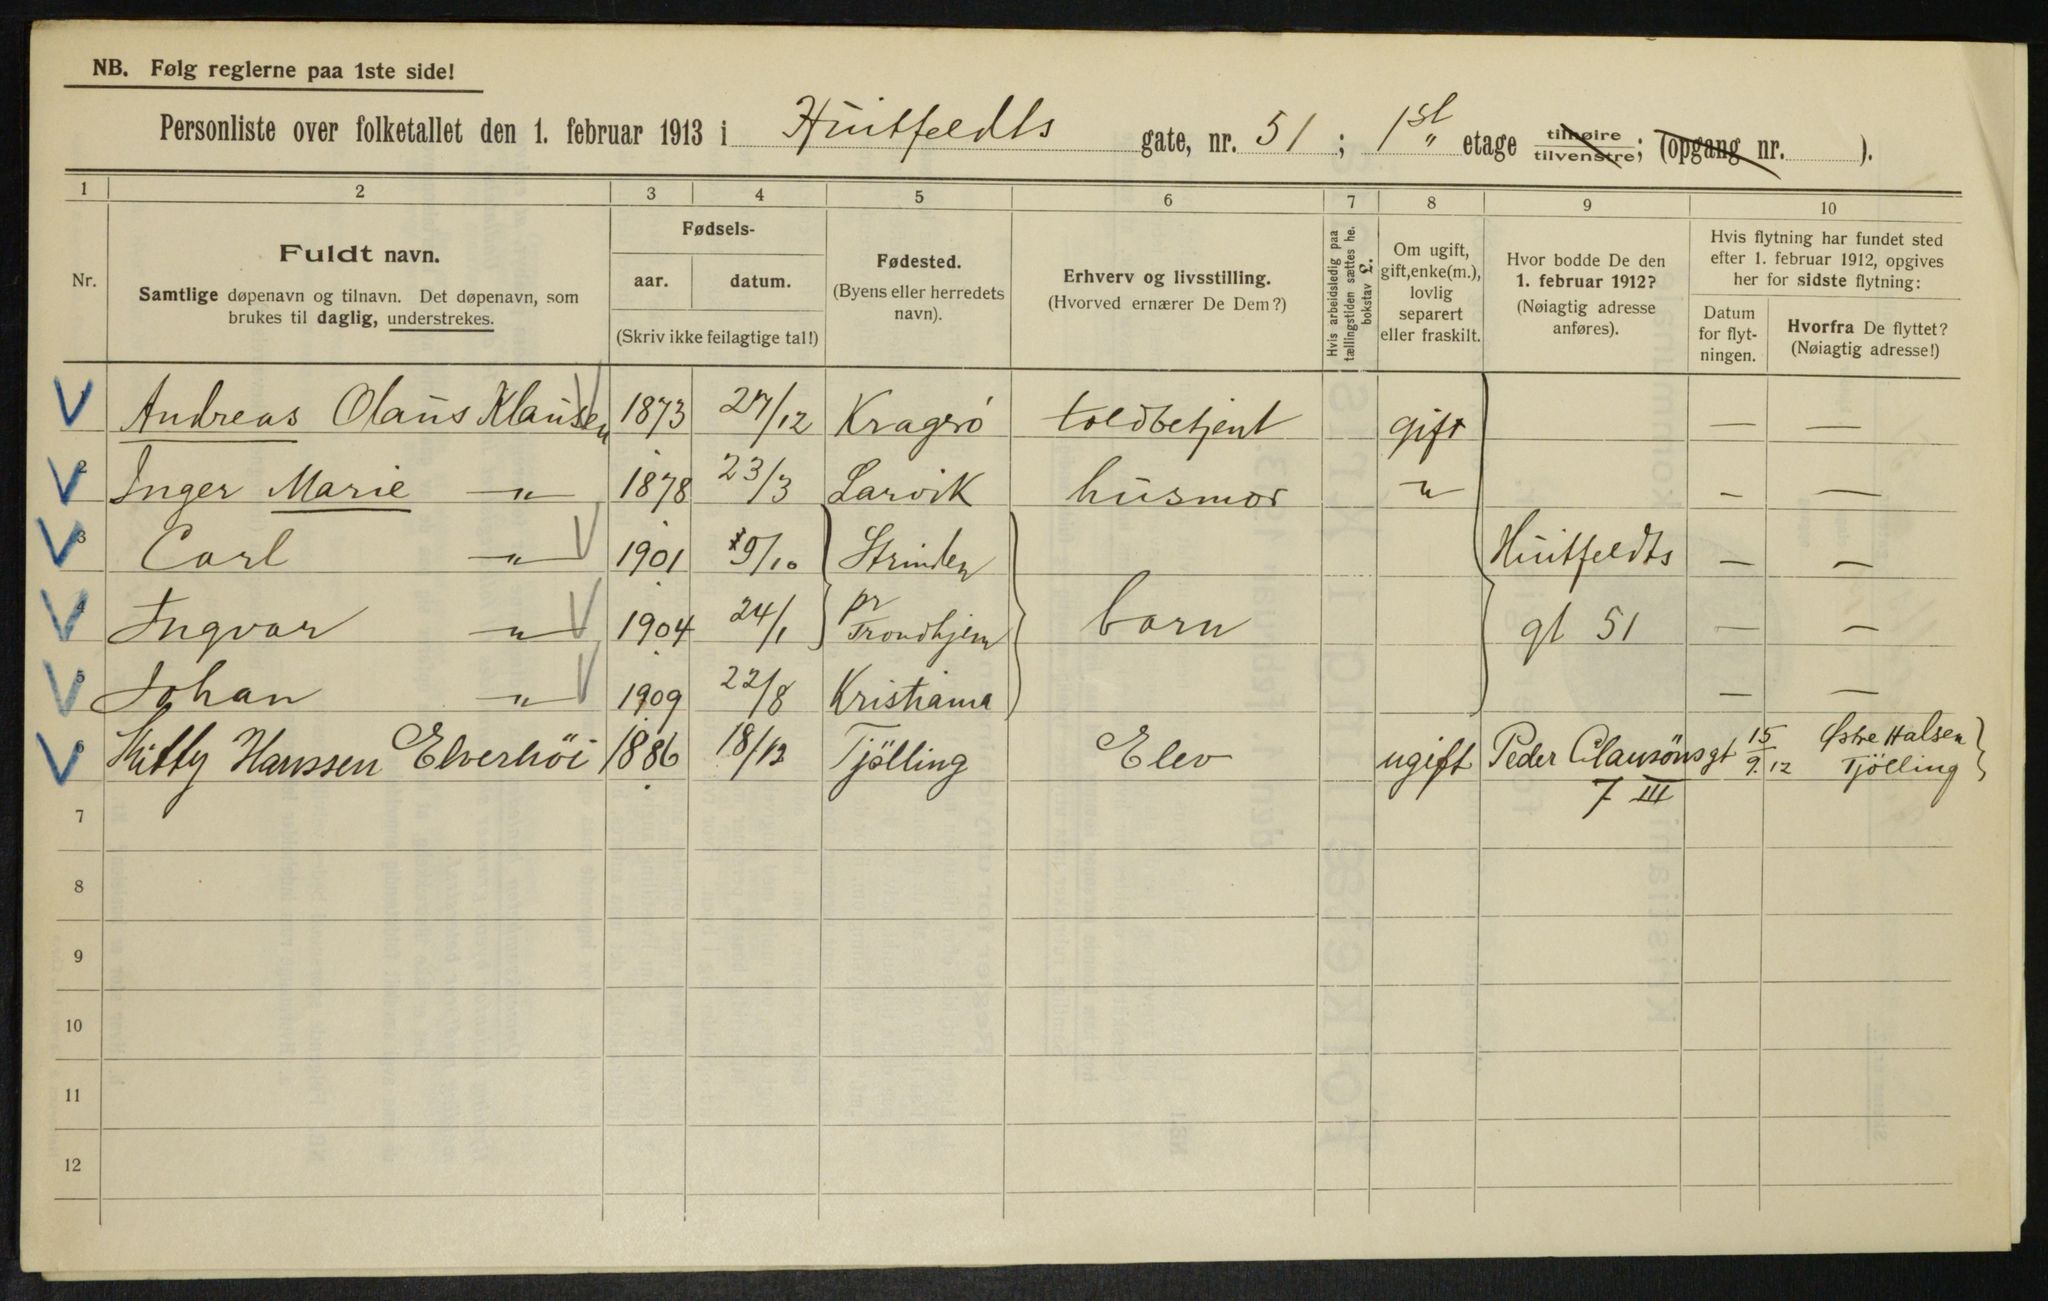 NB. Følg reglerne paa 1ste side!
Personliste over folketallet den 1. februar 1913 i Huitfeldts gate, nr. 51 ; 1st etage tilhøire tilvenstre; (opgang nr. ).
1 2 3 4 5 6 7 8 9 10
Nr.
Fuldt navn.
Samtlige døpenavn og tilnavn. Det døpenavn, som
brukes til daglig, understrekes.
Fødsels-
aar. datum.
(Skriv ikke feilagtige tal!)
Fødested.
(Byens eller herredets
navn).
Erhverv og livsstilling.
(Hvorved ernærer De Dem?)
Hvis arbeidsledig paa
tællingstiden sættes he.
bokstav L.
Om ugift,
gift, enke(m.),
lovlig
separert
eller fraskilt.
Hvor bodde De den
1. februar 1912?
(Nøiagtig adresse
anføres).
Hvis flytning har fundet sted
efter 1. februar 1912, opgives
her for sidste flytning:
Datum
for flyt-
ningen.
Hvorfra De flyttet?
(Nøiagtig adresse!)
1 Andreas Olaus Klausen 1873 27/12 Kragerö toldbetjent gift — —
2 Inger Marie —„— 1878 23/3 Larvik husmor —„— — —
3 Carl —„— 1901 9/10 Strinden Huitfeldts — —
4 Ingvar —„— 1904 24/1 pr Trondhjem barn gt 51 — —
5 Johan —„— 1909 22/8 Kristiania — —
6 Kitty Hanssen Elverhöi 1886 18/12 Tjølling Elev ugift Peder Clausönsgt 15/9 12 Østre Halsen
7 III Tjölling
7
8
9
10
11
12